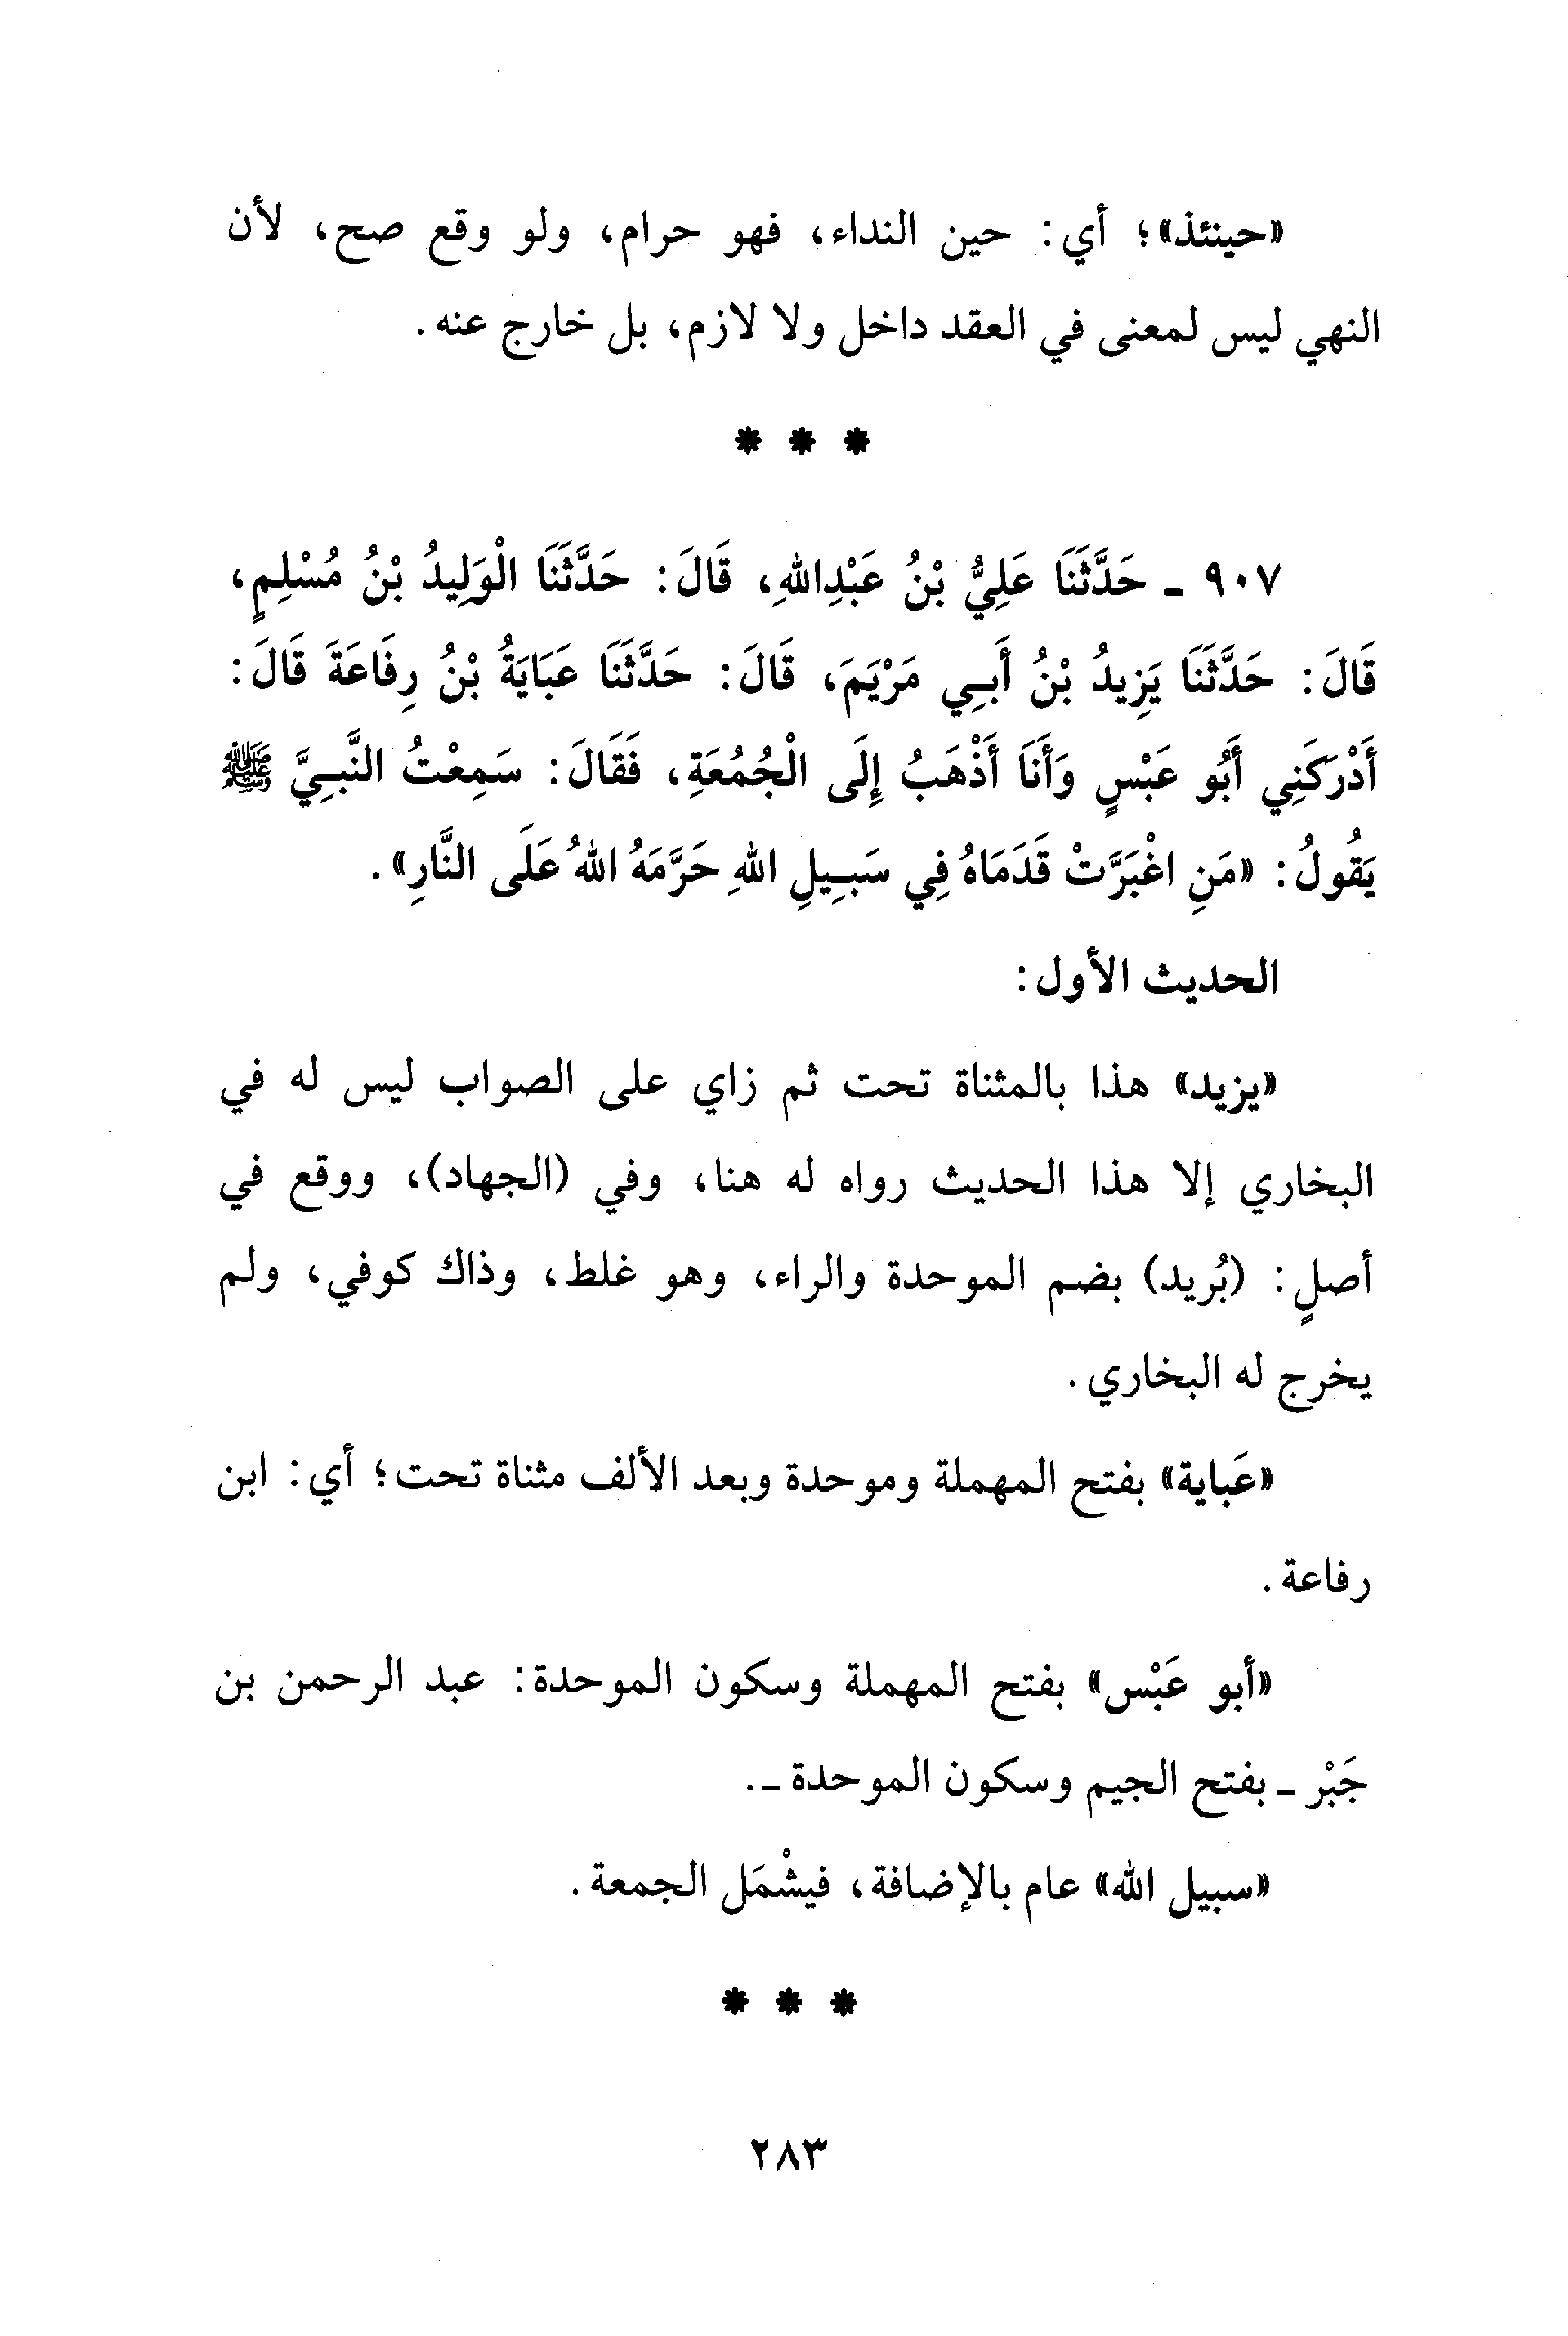 «حينئذ»؛ أي: حين النداء، فهو حرام، ولو وقع صح، لأن
النهي ليس لمعنى في العقد داخل ولا لازم، بل خارج عنه.
* * *
٩٠٧ ـ حَدَّثَنَا عَلِيُّ بْنُ عَبْدِاللهِ، قَالَ: حَدَّثَنَا الْوَلِيدُ بْنُ مُسْلِمٍ،
قَالَ: حَدَّثَنَا يَزِيدُ بْنُ أَبِي مَرْيَمَ، قَالَ: حَدَّثَنَا عَبَايَةُ بْنُ رِفَاعَةَ قَالَ:
أَدْرَكَنِي أَبُو عَبْسٍ وَأَنَا أَذْهَبُ إِلَى الْجُمُعَةِ، فَقَالَ: سَمِعْتُ النَّبِيَّ ﷺ
يَقُولُ: «مَنِ اغْبَرَّتْ قَدَمَاهُ فِي سَبِيلِ اللهِ حَرَّمَهُ اللهُ عَلَى النَّارِ».
الحديث الأول:
«يزيد» هذا بالمثناة تحت ثم زاي على الصواب ليس له في
البخاري إلا هذا الحديث رواه له هنا، وفي (الجهاد)، ووقع في
أصلٍ: (بُريد) بضم الموحدة والراء، وهو غلط، وذاك كوفي، ولم
يخرج له البخاري.
«عَباية» بفتح المهملة وموحدة وبعد الألف مثناة تحت؛ أي: ابن
رفاعة.
«أبو عَبْس» بفتح المهملة وسكون الموحدة: عبد الرحمن بن
جَبْر ـ بفتح الجيم وسكون الموحدة ـ.
«سبيل الله» عام بالإضافة، فيشْمَل الجمعة.
* * *
٢٨٣